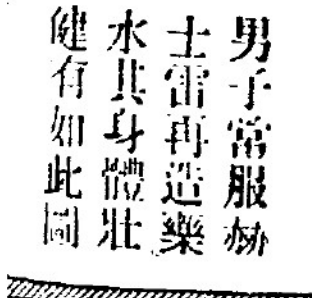 男子常服赫
士雷再造樂
水其身體壯
健有如此圖